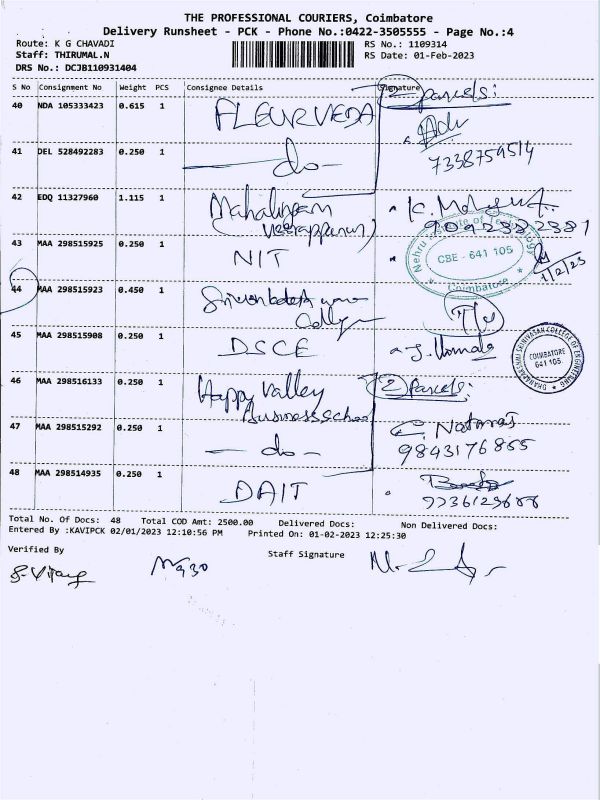 THE PROFESSIONAL COURIERS, Coimbatore
Delivery Runsheet - PCK - Phone No.:0422-3505555 - Page No.:4
Route: K G CHAVADI
RS No.: 1109314
Staff: THIRUMAL.N
RS Date: 01-Feb-2023
DRS No.: DCJB110931404
S No Consignment No Weight PCS Consignee Details Signature
2 parcels:
40 NDA 105333423 0.615 1 FLEURVEDA
7338759514
41 DEL 528492283 0.250 1 -do-
42 EDQ 11327960 1.115 1 Mahalingam
9092382381
43 MAA 298515925 0.250 1 NIT
Nehru Institute of Technology
CBE - 641 105
Coimbatore
1/2/23
44 MAA 298515923 0.450 1
45 MAA 298515908 0.250 1 DSCE
DHANALAKSHMI SRINIVASAN COLLEGE OF ENGINEERING
COIMBATORE
641 105
46 MAA 298516133 0.250 1 Happy Valley
Business School
2 Parcels:
47 MAA 298515292 0.250 1 -do-
9843176855
48 MAA 298514935 0.250 1 DAIT
Total No. Of Docs: 48 Total COD Amt: 2500.00 Delivered Docs: Non Delivered Docs:
Entered By :KAVIPCK 02/01/2023 12:10:56 PM Printed On: 01-02-2023 12:25:30
Verified By
Staff Signature